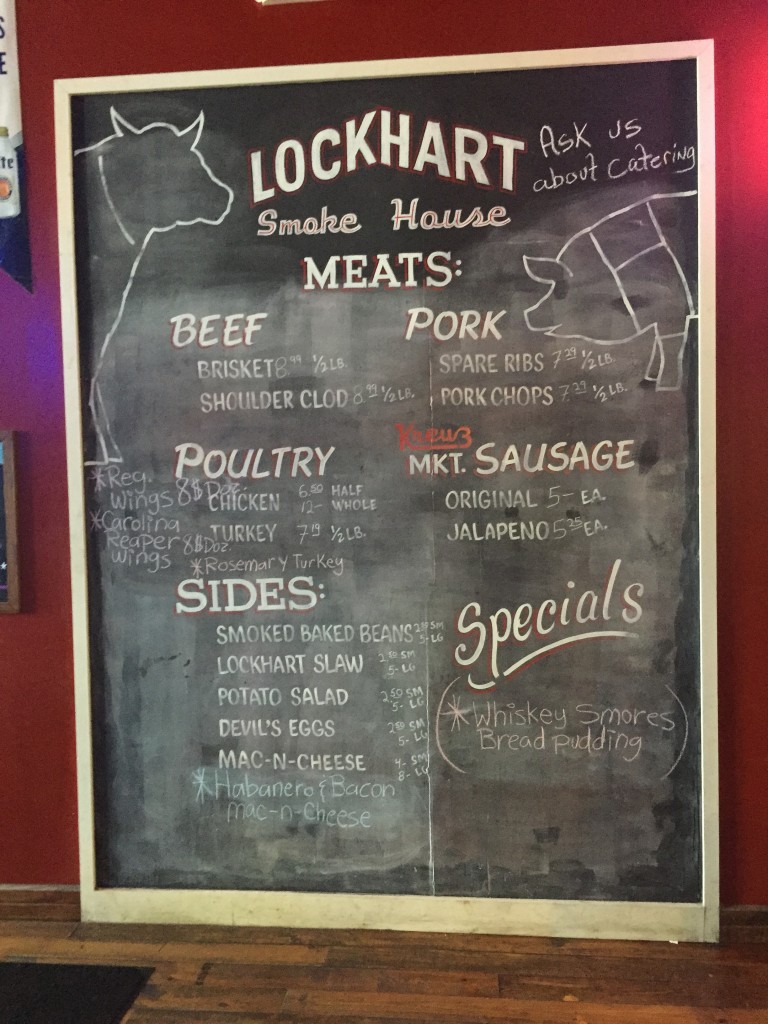 LOCKHART
Smoke House
Ask us
about Catering
MEATS:
BEEF
BRISKET 8.99 1/2 LB.
SHOULDER CLOD 8.99 1/2 LB.
PORK
SPARE RIBS 7.29 1/2 LB.
PORK CHOPS 7.29 1/2 LB.
POULTRY
CHICKEN 6.50 HALF
12- WHOLE
TURKEY 7.19 1/2 LB.
*Rosemary Turkey
*Reg.
Wings 8$ Doz.
*Carolina
Reaper 8$ Doz.
Wings
Kreuz
MKT. SAUSAGE
ORIGINAL 5- EA.
JALAPENO 5.25 EA.
SIDES:
SMOKED BAKED BEANS 2.50 SM
5- LG
LOCKHART SLAW 2.50 SM
5- LG
POTATO SALAD 2.50 SM
5- LG
DEVIL'S EGGS 2.50 SM
5- LG
MAC-N-CHEESE 4- SM
8- LG
*Habanero & Bacon
mac-n-Cheese
Specials
*Whiskey Smores
Bread pudding